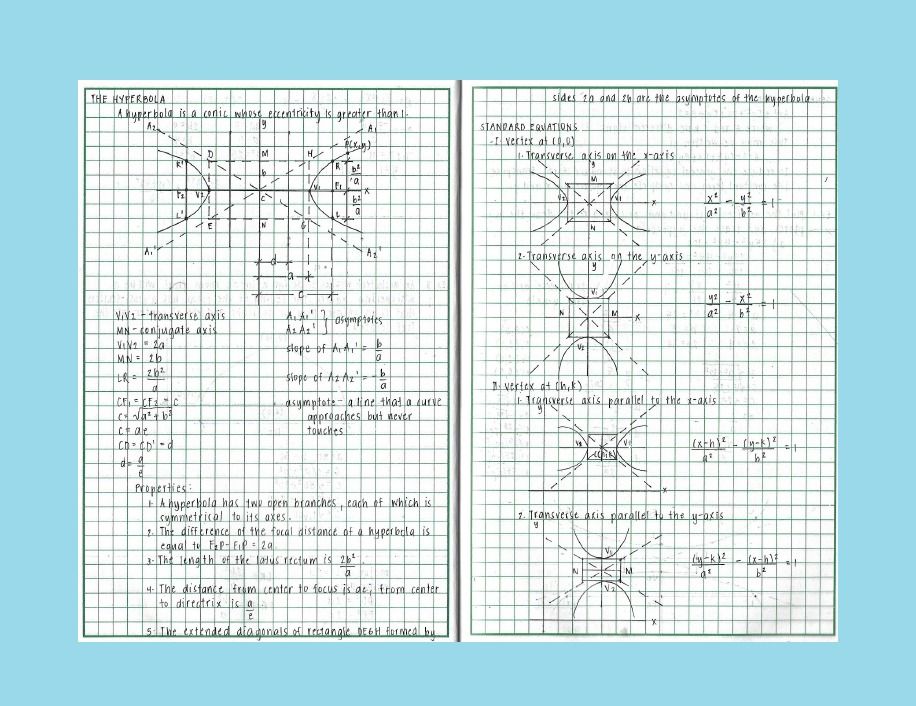 THE HYPERBOLA
A hyperbola is a conic whose eccentricity is greater than 1.
A2 y A1
P(x,y)
D M H
R' R
b b²/a
F2 V2 C V1 F1 x
b²/a
L' E N G L
A1' A2'
d
a
c
V1V2 - transverse axis
MN - conjugate axis
V1V2 = 2a
MN = 2b
LR = 2b²/a
CF1 = CF2 = c
c = √a² + b²
c = ae
CD = CD' = d
d = a/e
A1 A1' } asymptotes
A2 A2'
slope of A1 A1' = b/a
slope of A2 A2' = -b/a
asymptote - a line that a curve
approaches but never
touches
Properties:
1. A hyperbola has two open branches, each of which is
symmetrical to its axes.
2. The difference of the focal distance of a hyperbola is
equal to F2P - F1P = 2a.
3. The length of the latus rectum is 2b²/a
4. The distance from center to focus is ae; from center
to directrix is a/e.
5. The extended diagonals of rectangle DEGH formed by
sides 2a and 2b are the asymptotes of the hyperbola.
STANDARD EQUATIONS
I. vertex at (0,0)
1. Transverse axis on the x-axis
y
M
V2 V1 x
N
x²/a² - y²/b² = 1
2. Transverse axis on the y-axis
y
V1
N M x
V2
y²/a² - x²/b² = 1
II. vertex at (h,k)
1. Transverse axis parallel to the x-axis
y
V2 V1
C(h,k)
x
(x-h)²/a² - (y-k)²/b² = 1
2. Transverse axis parallel to the y-axis
y
V1
N M
V2
x
(y-k)²/a² - (x-h)²/b² = 1